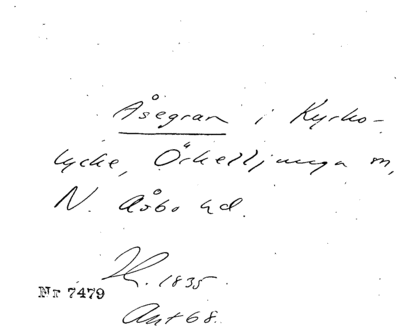 Åsegran i Kyrko-
lycke, Örkelljunga m,
N. Åsbo hd.
1835.
Nr 7479
Ant 68.